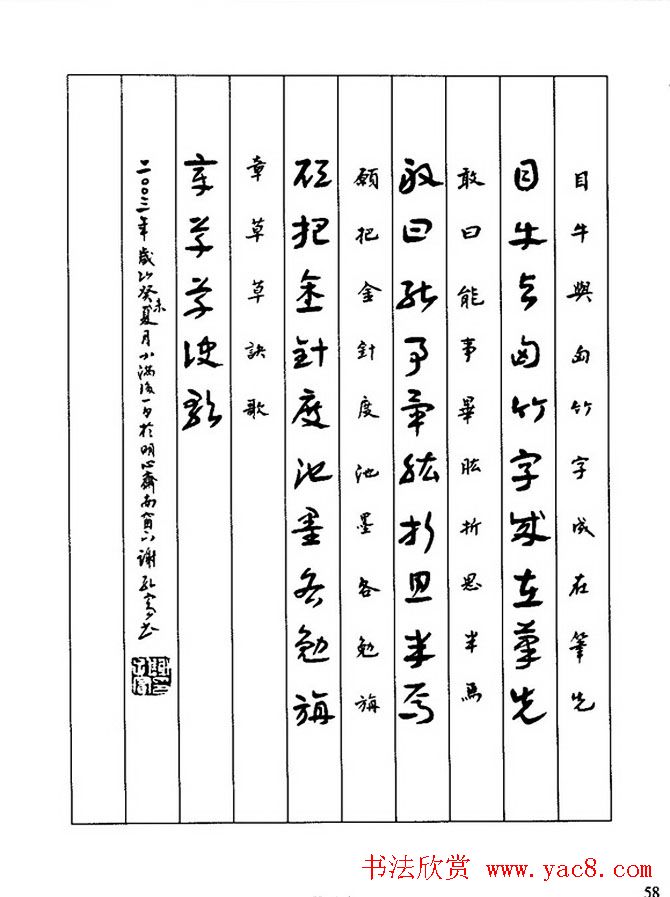 目牛與匈竹字成在筆先
目牛與匈竹字成在筆先
敢曰能事畢肱折思半焉
敢曰能事畢肱折思半焉
願把金針度池墨各勉旃
願把金針度池墨各勉旃
章草草訣歌
章草草訣歌
二〇〇三年歲次癸未夏月小滿後一日於明心齋南窗下謝孔賓書
书法欣赏 www.yac8.com
58